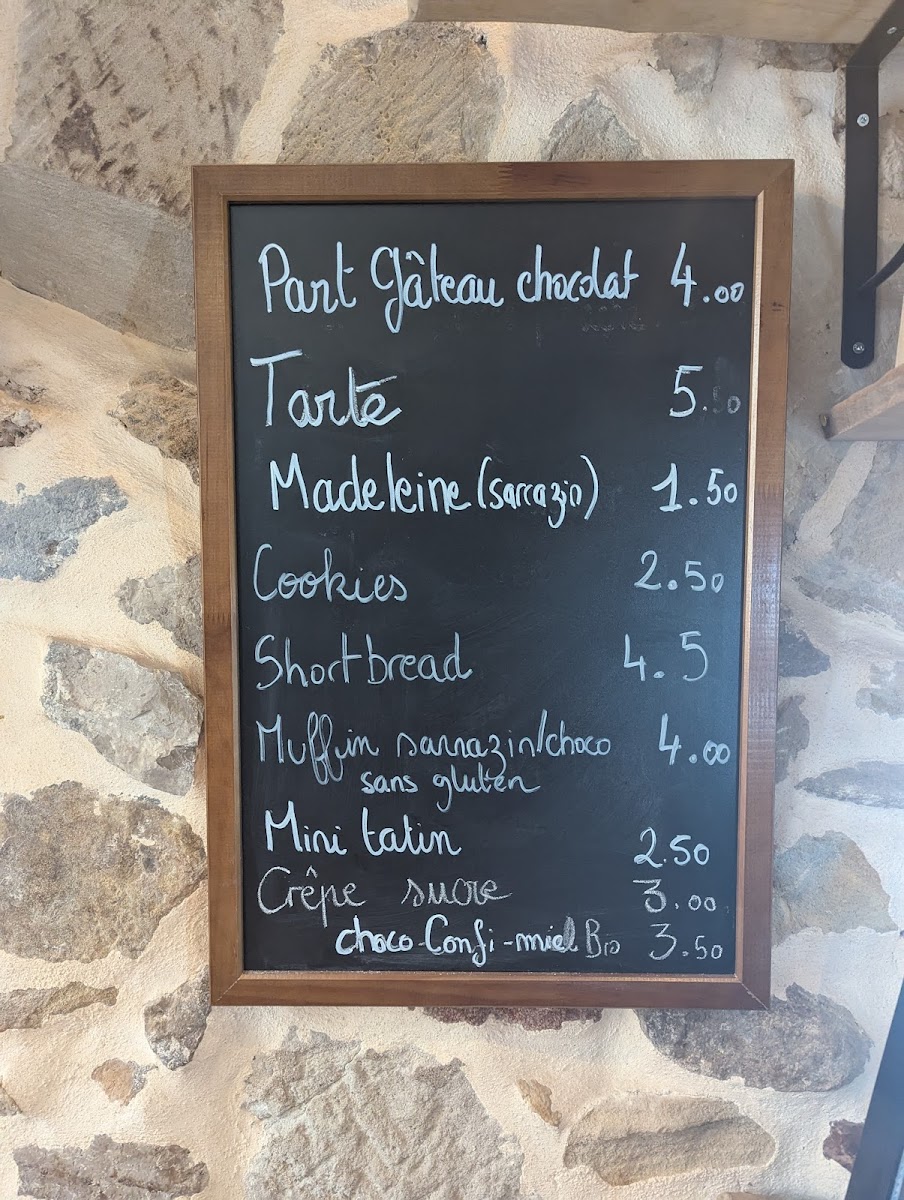 Part Gâteau chocolat 4.00
Tarte 5.50
Madeleine (sarrazin) 1.50
Cookies 2.50
Shortbread 4.5
Muffin sarrazin/choco 4.00
sans gluten
Mini tatin 2.50
Crêpe sucre 3.00
choco-Confi-miel Bio 3.50